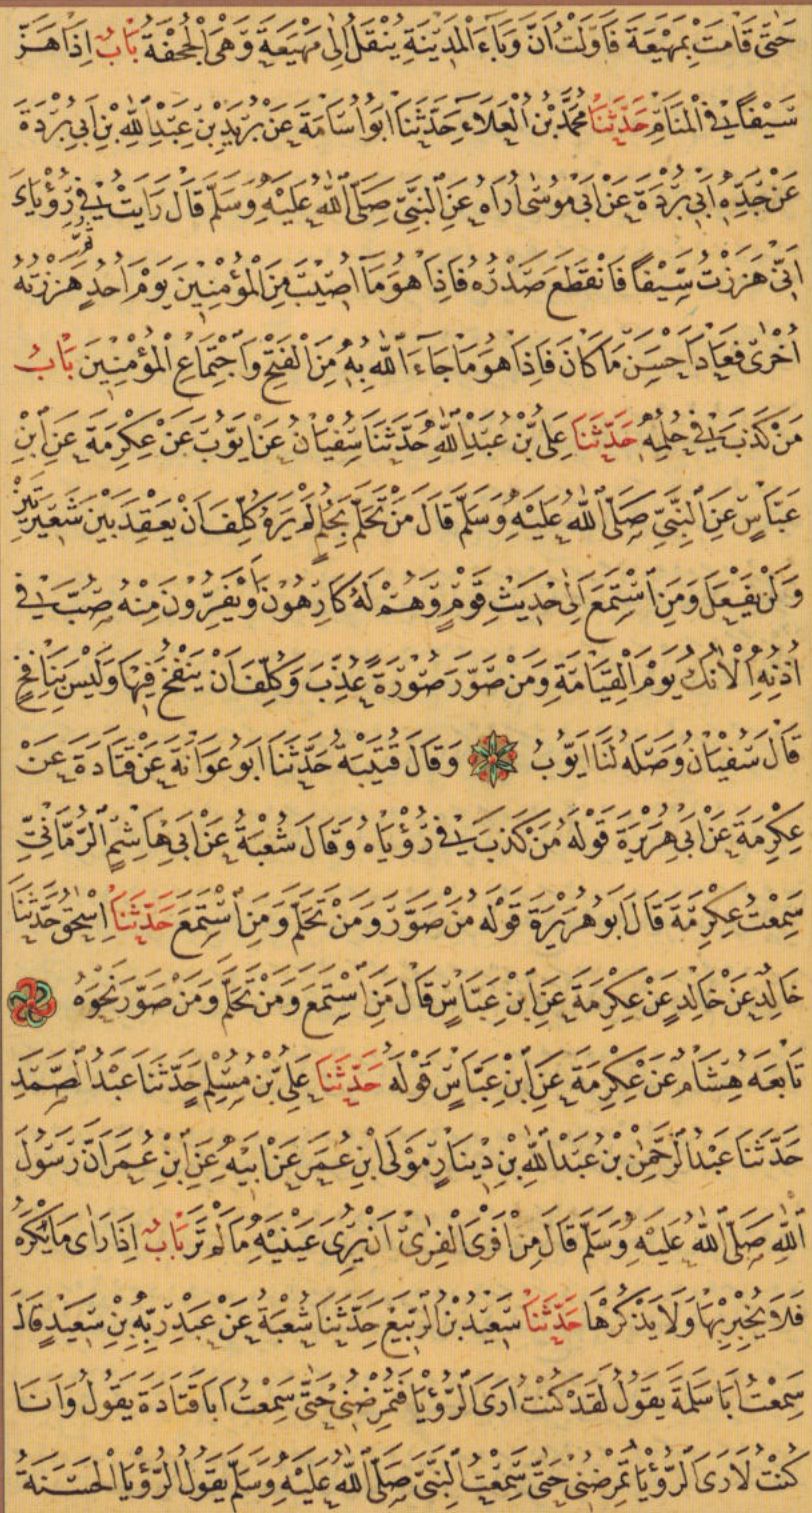 حَتّٰى قَامَتْ بِمَهْيَعَةَ فَاَوَّلْتُ اَنَّ وَبَاءَ الْمَدِينَةِ يُنْقَلُ اِلٰى مَهْيَعَةَ وَهْىَ الْجُحْفَةُ بَابٌ اِذَا هَزَّ
سَيْفًا فِى الْمَنَامِ حَدَّثَنَا مُحَمَّدُ بْنُ الْعَلَاءِ حَدَّثَنَا اَبُو اُسَامَةَ عَنْ بُرَيْدِ بْنِ عَبْدِ اللّٰهِ بْنِ اَبِى بُرْدَةَ
عَنْ جَدِّهِ اَبِى بُرْدَةَ عَنْ اَبِى مُوسٰى اُرَاهُ عَنِ النَّبِىِّ صَلَّى اللّٰهُ عَلَيْهِ وَسَلَّمَ قَالَ رَاَيْتُ فِى رُؤْيَاىَ
اَنِّى هَزَزْتُ سَيْفًا فَانْقَطَعَ صَدْرُهُ فَاِذَا هُوَ مَا اُصِيبَ مِنَ الْمُؤْمِنِينَ يَوْمَ اُحُدٍ ثُمَّ هَزَزْتُهُ
اُخْرٰى فَعَادَ اَحْسَنَ مَا كَانَ فَاِذَا هُوَ مَا جَاءَ اللّٰهُ بِهِ مِنَ الْفَتْحِ وَاجْتِمَاعِ الْمُؤْمِنِينَ بَابُ
مَنْ كَذَبَ فِى حُلُمِهِ حَدَّثَنَا عَلِىُّ بْنُ عَبْدِ اللّٰهِ حَدَّثَنَا سُفْيَانُ عَنْ اَيُّوبَ عَنْ عِكْرِمَةَ عَنِ ابْنِ
عَبَّاسٍ عَنِ النَّبِىِّ صَلَّى اللّٰهُ عَلَيْهِ وَسَلَّمَ قَالَ مَنْ تَحَلَّمَ بِحُلُمٍ لَمْ يَرَهُ كُلِّفَ اَنْ يَعْقِدَ بَيْنَ شَعِيرَتَيْنِ
وَلَنْ يَفْعَلَ وَمَنِ اسْتَمَعَ اِلٰى حَدِيثِ قَوْمٍ وَهُمْ لَهُ كَارِهُونَ اَوْ يَفِرُّونَ مِنْهُ صُبَّ فِى
اُذُنِهِ الْاٰنُكُ يَوْمَ الْقِيَامَةِ وَمَنْ صَوَّرَ صُورَةً عُذِّبَ وَكُلِّفَ اَنْ يَنْفُخَ فِيهَا وَلَيْسَ بِنَافِخٍ
قَالَ سُفْيَانُ وَصَلَهُ لَنَا اَيُّوبُ وَقَالَ قُتَيْبَةُ حَدَّثَنَا اَبُو عَوَانَةَ عَنْ قَتَادَةَ عَنْ
عِكْرِمَةَ عَنْ اَبِى هُرَيْرَةَ قَوْلَهُ مَنْ كَذَبَ فِى رُؤْيَاهُ وَقَالَ شُعْبَةُ عَنْ اَبِى هَاشِمٍ الرُّمَّانِىِّ
سَمِعْتُ عِكْرِمَةَ قَالَ اَبُو هُرَيْرَةَ قَوْلَهُ مَنْ صَوَّرَ وَمَنْ تَحَلَّمَ وَمَنِ اسْتَمَعَ حَدَّثَنَا اِسْحٰقُ حَدَّثَنَا
خَالِدٌ عَنْ خَالِدٍ عَنْ عِكْرِمَةَ عَنِ ابْنِ عَبَّاسٍ قَالَ مَنِ اسْتَمَعَ وَمَنْ تَحَلَّمَ وَمَنْ صَوَّرَ نَحْوَهُ
تَابَعَهُ هِشَامٌ عَنْ عِكْرِمَةَ عَنِ ابْنِ عَبَّاسٍ قَوْلَهُ حَدَّثَنَا عَلِىُّ بْنُ مُسْلِمٍ حَدَّثَنَا عَبْدُ الصَّمَدِ
حَدَّثَنَا عَبْدُ الرَّحْمٰنِ بْنُ عَبْدِ اللّٰهِ بْنِ دِينَارٍ مَوْلَى ابْنِ عُمَرَ عَنْ اَبِيهِ عَنِ ابْنِ عُمَرَ اَنَّ رَسُولَ
اللّٰهِ صَلَّى اللّٰهُ عَلَيْهِ وَسَلَّمَ قَالَ مِنْ اَفْرَى الْفِرٰى اَنْ يُرِىَ عَيْنَيْهِ مَا لَمْ تَرَ بَابٌ اِذَا رَاٰى مَا يَكْرَهُ
فَلَا يُخْبِرْ بِهَا وَلَا يَذْكُرْهَا حَدَّثَنَا سَعِيدُ بْنُ الرَّبِيعِ حَدَّثَنَا شُعْبَةُ عَنْ عَبْدِ رَبِّهِ بْنِ سَعِيدٍ قَالَ
سَمِعْتُ اَبَا سَلَمَةَ يَقُولُ لَقَدْ كُنْتُ اَرَى الرُّؤْيَا فَتُمْرِضُنِى حَتّٰى سَمِعْتُ اَبَا قَتَادَةَ يَقُولُ وَاَنَا
كُنْتُ لَاَرَى الرُّؤْيَا تُمْرِضُنِى حَتّٰى سَمِعْتُ النَّبِىَّ صَلَّى اللّٰهُ عَلَيْهِ وَسَلَّمَ يَقُولُ الرُّؤْيَا الْحَسَنَةُ